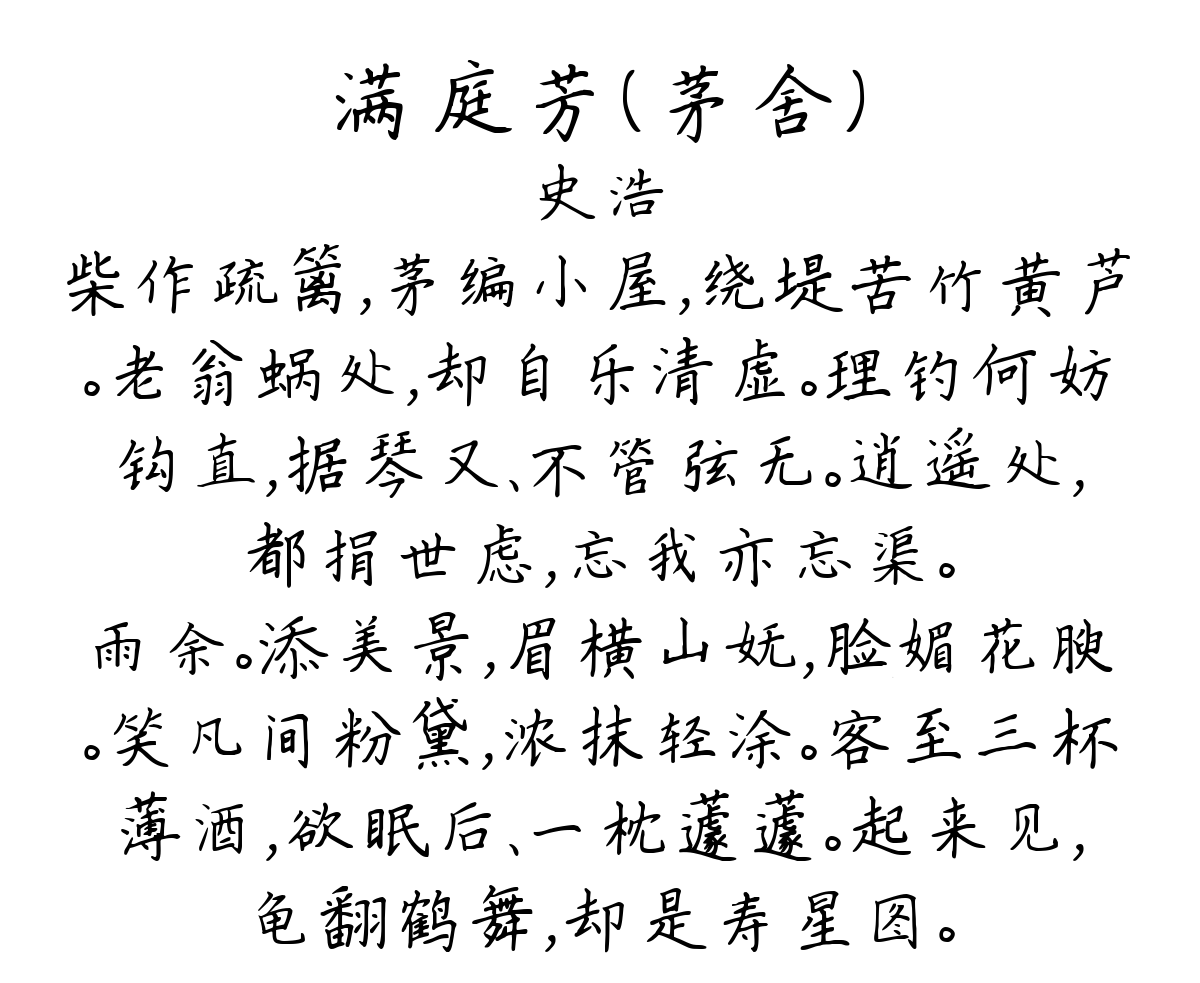 满庭芳(茅舍)
史浩
柴作疏篱,茅编小屋,绕堤苦竹黄芦
。老翁蜗处,却自乐清虚。理钓何妨
钩直,据琴又、不管弦无。逍遥处,
都捐世虑,忘我亦忘渠。
雨余。添美景,眉横山妩,脸媚花腴
。笑凡间粉黛,浓抹轻涂。客至三杯
薄酒,欲眠后、一枕蘧蘧。起来见,
龟翻鹤舞,却是寿星图。